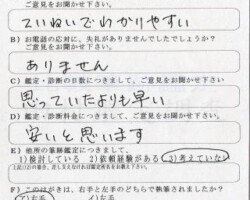 ご意見をお聞かせ下さい。
ていねいでわかりやすい
B）お電話の応対に、失礼がありませんでしたでしょうか？
ご意見をお聞かせ下さい。
ありません
C）鑑定・診断の日数につきまして、ご意見をお聞かせ下さい
思っていたよりも早い
D）鑑定・診断料金につきまして、ご意見をお聞かせ下さい。
安いと思います
E）他所の筆跡鑑定につきまして、
1）検討している 2）依頼経験がある 3）考えていない
F）このはがきは、右手と左手のどちらで執筆されましたか？
1）右手 2）左手